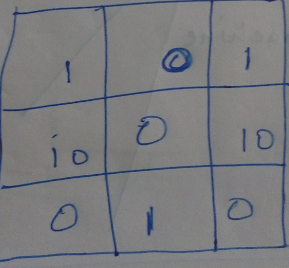 1 0 1
10 0 10
0 1 0